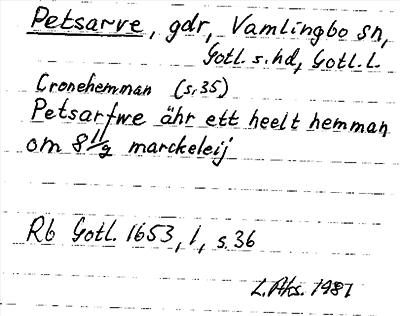 Petsarve, gdr, Vamlingbo sn,
Gotl. s. hd, Gotl. l.
Cronehemman (s. 35)
Petsarfwe ähr ett heelt hemman
om 8 11/g marckeleij
Rb Gotl. 1653, 1, s. 36
L. Ahs. 1981